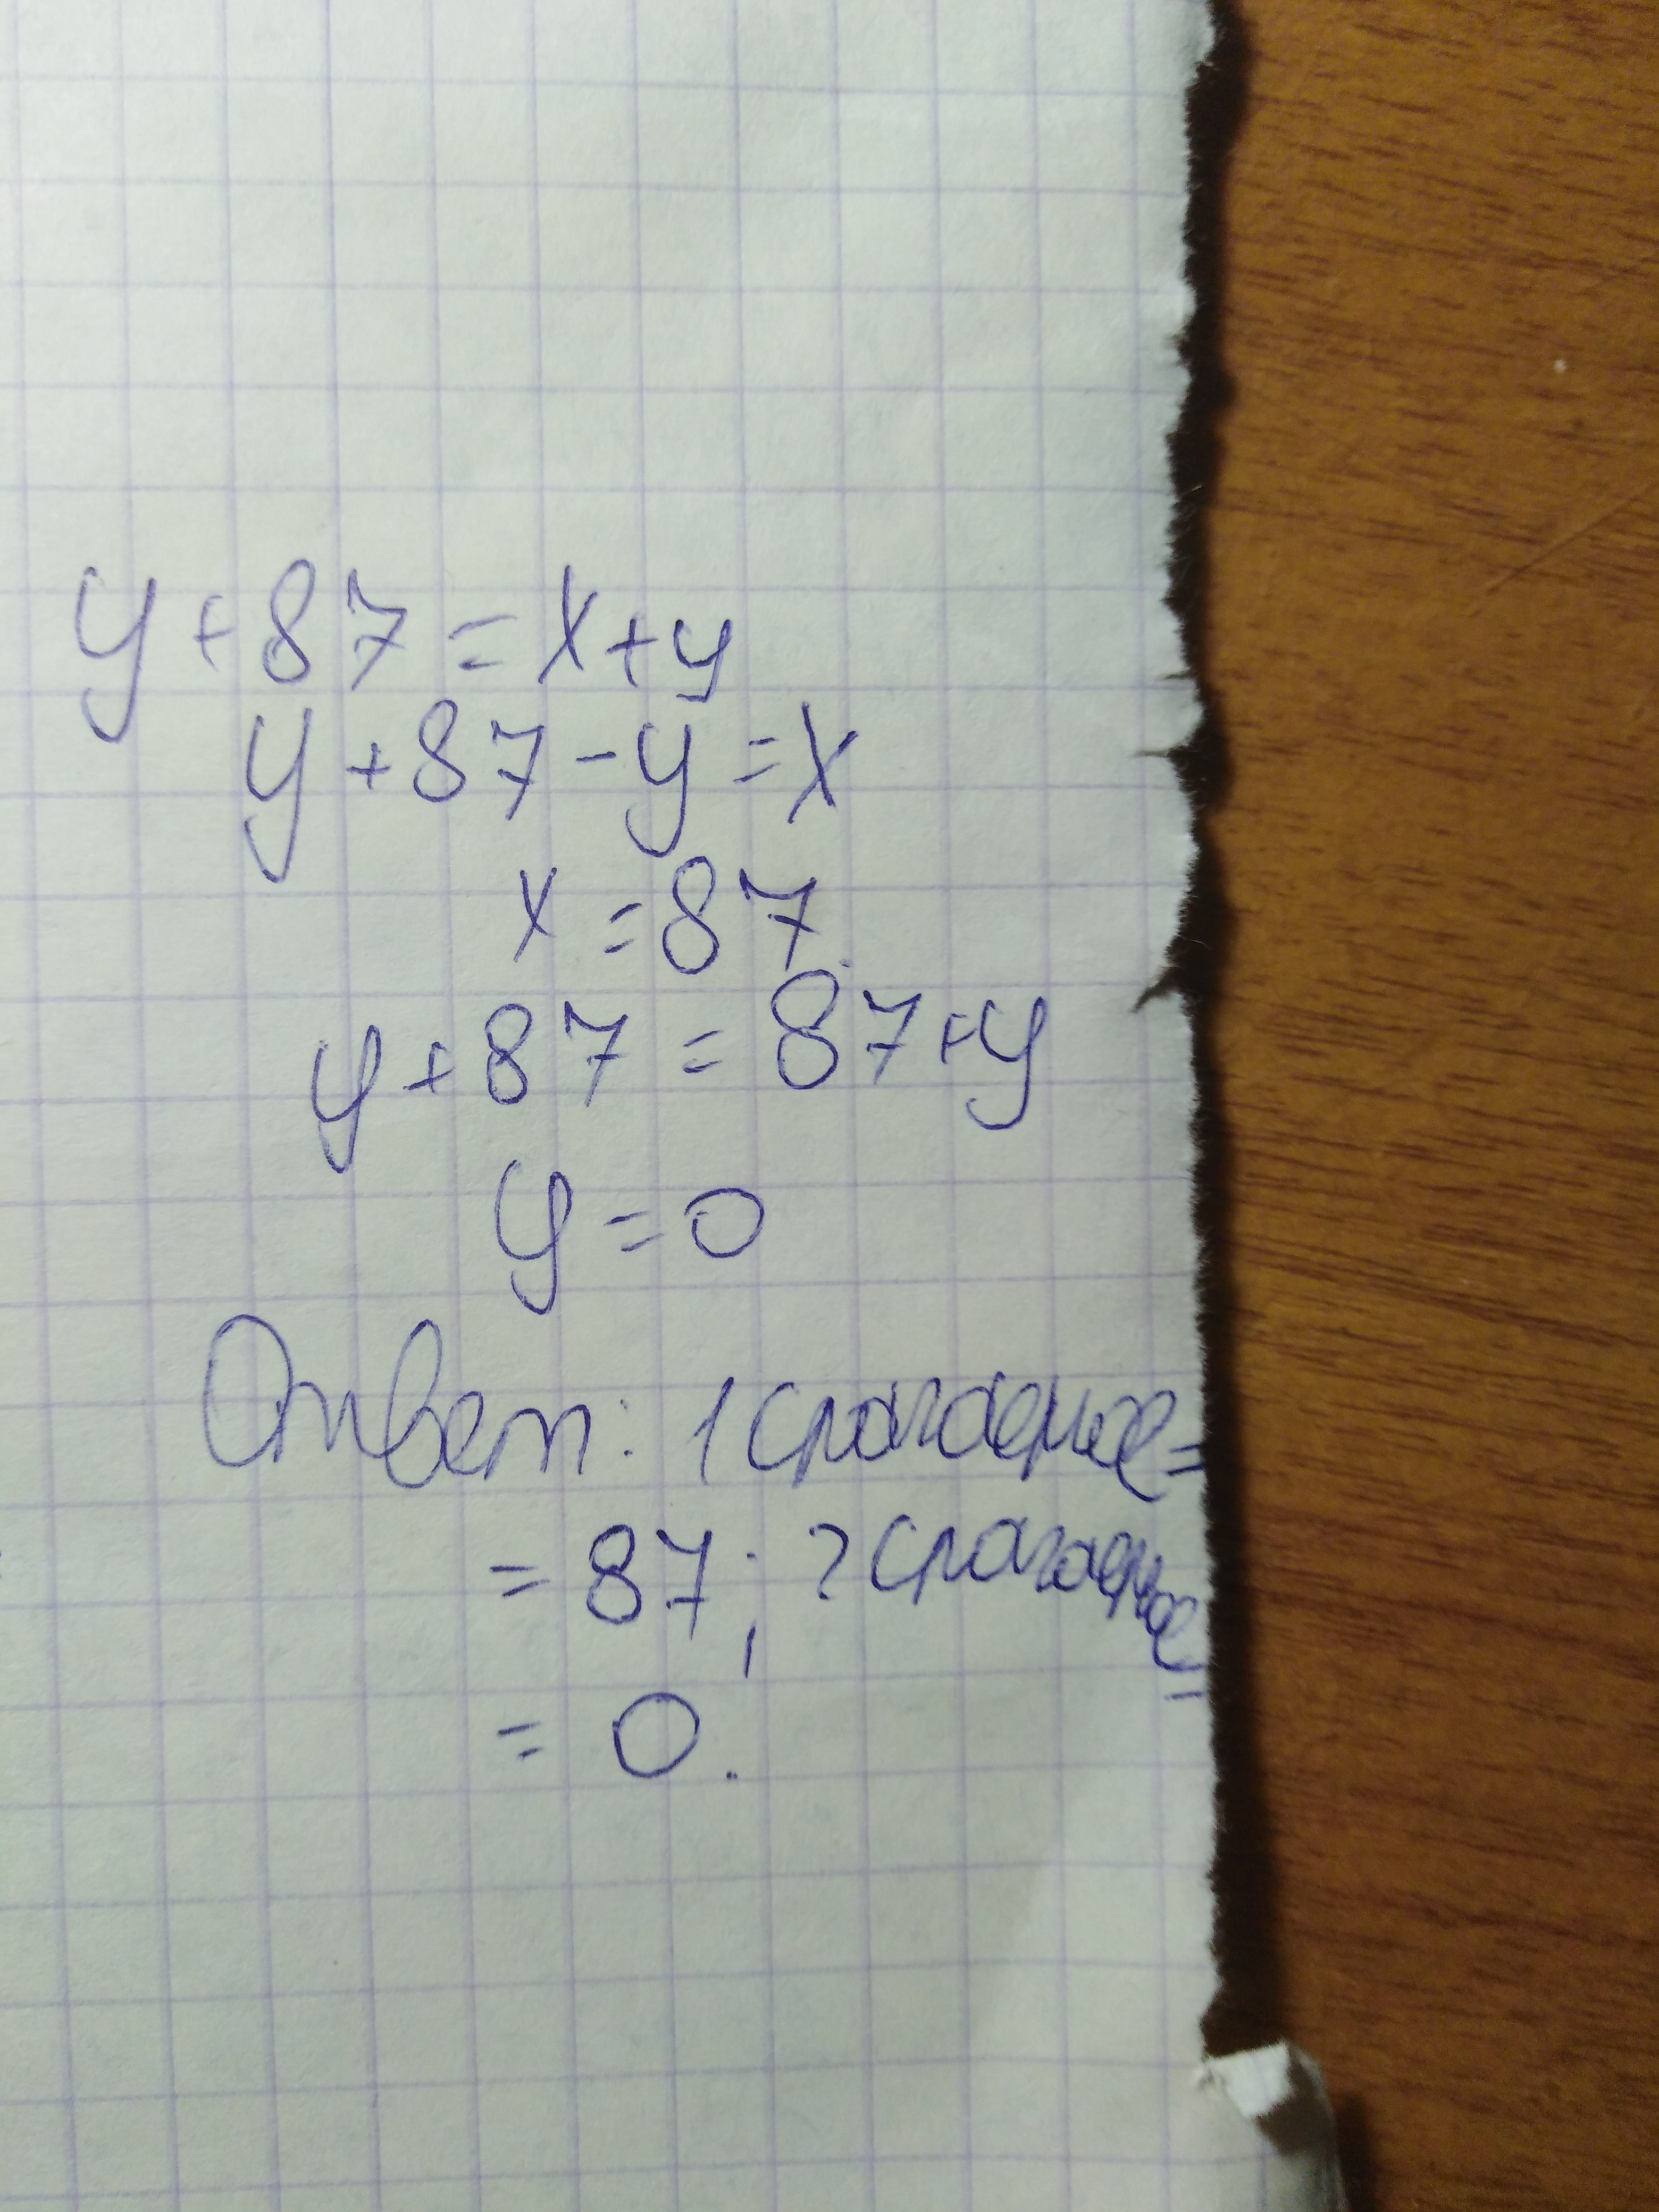 y + 87 = x + y
y + 87 - y = x
x = 87.
y + 87 = 87 + y
y = 0
Ответ: 1 слагаемое =
= 87; 2 слагаемое =
= 0.